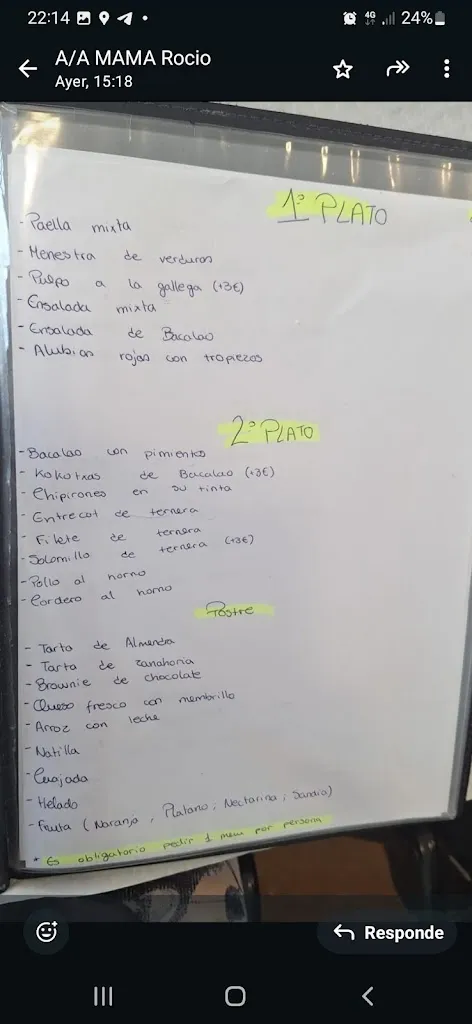 22:14
4G
24%
A/A MAMA Rocio
Ayer, 15:18
1º PLATO
- Paella mixta
- Menestra de verduras
- Pulpo a la gallega (+3€)
- Ensalada mixta
- Ensalada de Bacalao
- Alubias rojas con tropiezos
2º PLATO
- Bacalao con pimientos
- Kokotxas de Bacalao (+3€)
- Chipirones en su tinta
- Entrecot de ternera
- Filete de ternera
- Solomillo de ternera (+3€)
- Pollo al horno
- Cordero al horno
Postre
- Tarta de Almendra
- Tarta de zanahoria
- Brownie de chocolate
- Queso fresco con membrillo
- Arroz con leche
- Natilla
- Cuajada
- Helado
- Fruta (Naranja, Platano; Nectarina; Sandia)
* Es obligatorio pedir 1 menu por persona
Responde